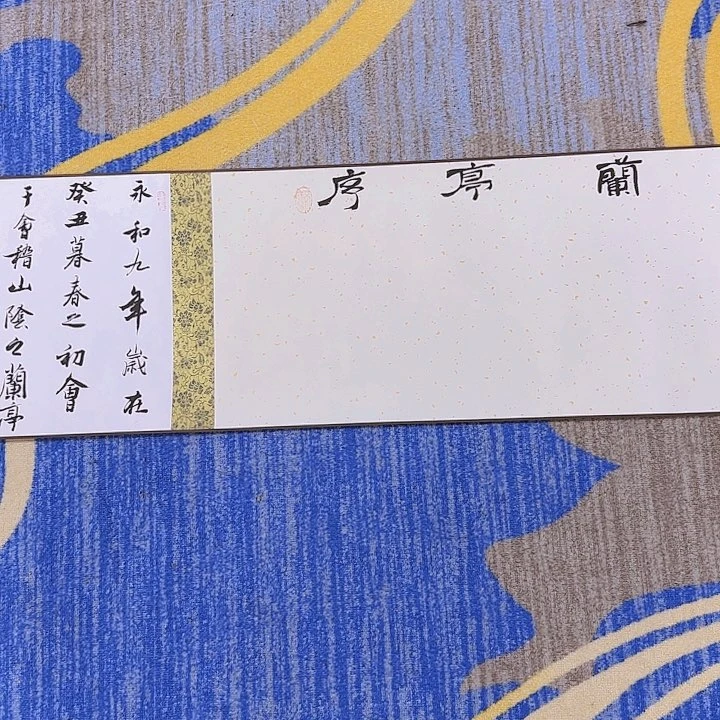 蘭亭序
永和九年歲在
癸丑暮春之初會
于會稽山陰之蘭亭